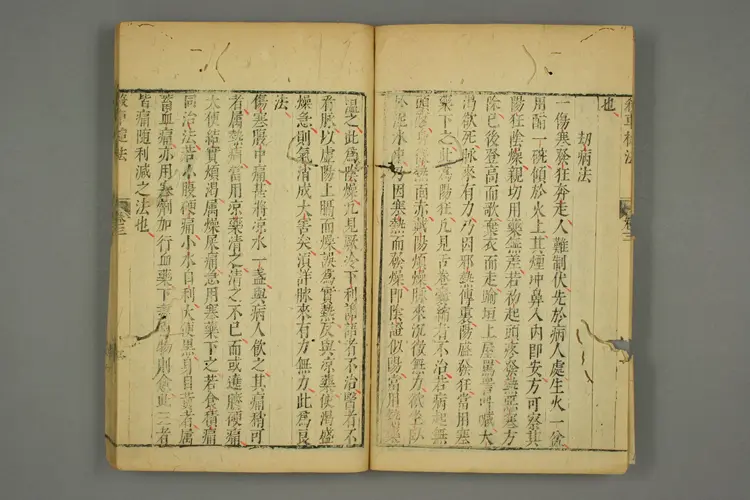 卷三
也
劫病法
一傷寒發狂奔走人難制伏先於病人處生火一盆
用醋一碗傾於火上其煙冲鼻入內即安方可察其
陽狂陰燥親切用藥無差若初起頭疼發熱惡寒方
除已後登高而歌棄衣而走踰垣上屋罵詈叫喊大
渴欲死脉來有力乃因邪熱傳裏陽盛發狂當用寒
藥下之此為陽狂凡見舌卷囊縮者不治若病起無
頭疼身微熱面赤戴陽煩燥脉來沉微無力欲坐臥
泥水中乃因寒而發燥即陰證似陽當用熱藥
溫之此為陰燥凡見厥冷下利譫語者不治醫者不
看脉以虛陽上膈而燥誤為實熱反與凉藥使渴盛
燥急則氣消成大害矣須詳脉來有力無力此為良
法
傷寒腹中痛甚將凉水一盞與病人飲之其痛稍可
者屬熱痛當用凉藥清之清之不已而或遶臍硬痛
大便結實煩渴屬燥屎痛急用寒藥下之若食積痛
同治法若小腹硬痛小水自利大便黑身目黃者屬
蓄血痛亦用寒劑加行血藥下物則愈此三者
皆痛隨利減之法也
殺車槌法
卷三